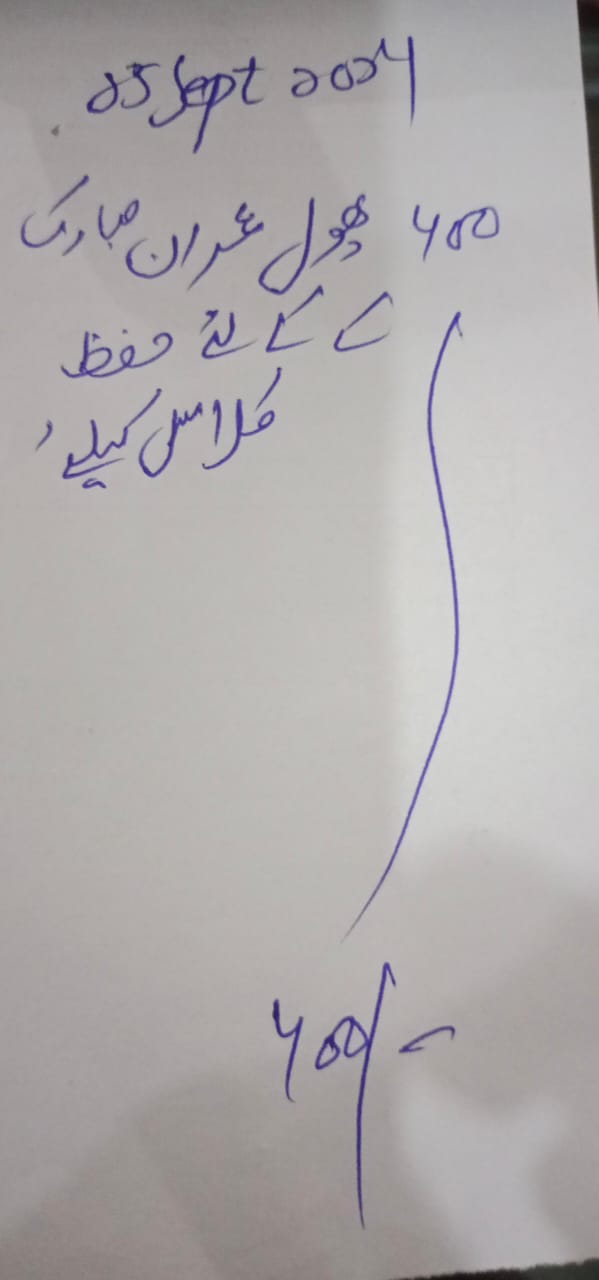 25 Sept 2024
400 پھول عمران مبارک
کے کے لئے حفظ
کلاس کیلئے
400/-